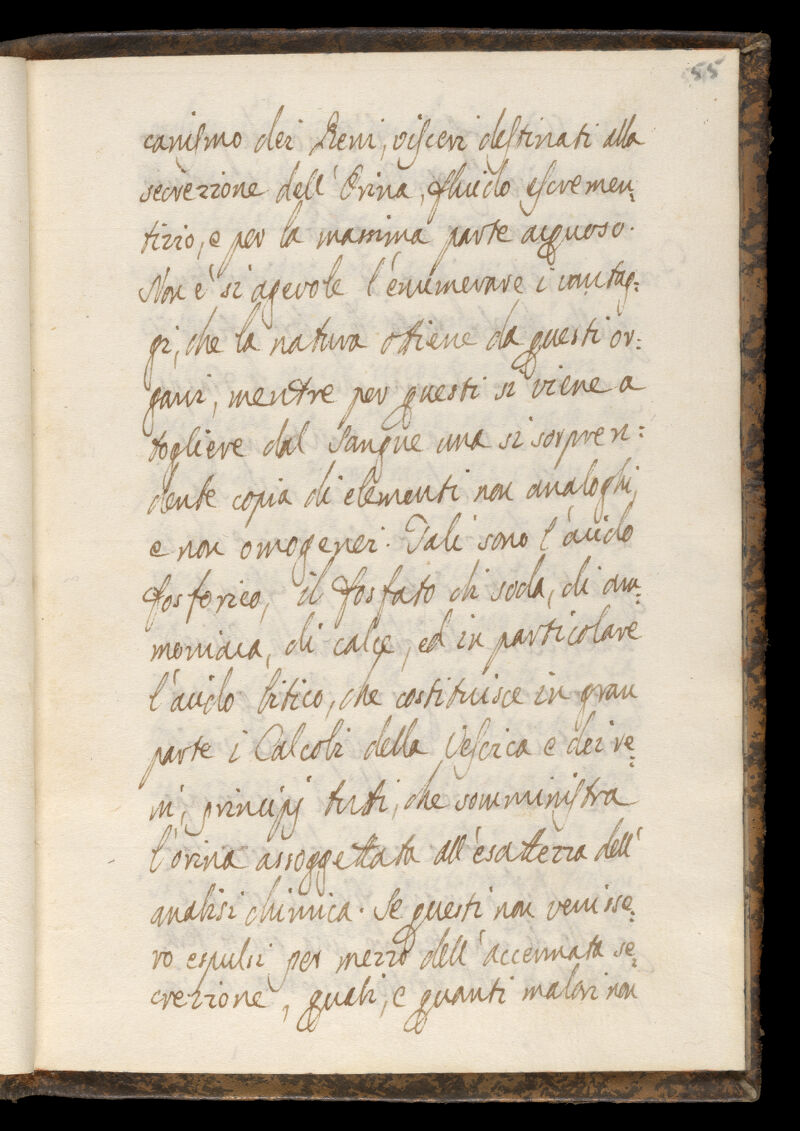 55
canismo dei Reni, visceri destinati alla
secrezione dell'Orina, fluido escremen:
tizio, e per la massima parte acquoso.
Non è si agevole l'enumerare i vantag:
gi, che la natura ottiene da questi or:
gani, mentre per questi si viene a
togliere dal Sangue una si sorpren:
dente copia di elementi non analoghi,
e non omogenei. Tali sono l'acido
fosforico, il fosfato di soda, di am:
moniaca, di calce, ed in particolare
l'acido litico, che costituisce in gran
parte i Calcoli della Vescica e dei re:
ni, principj tutti, che somministra
l'orina assoggettata all'esattezza dell'
analisi chimica. Se questi non venisse:
ro espulsi per mezzo dell'accennata se:
crezione, quali, e quanti malori non